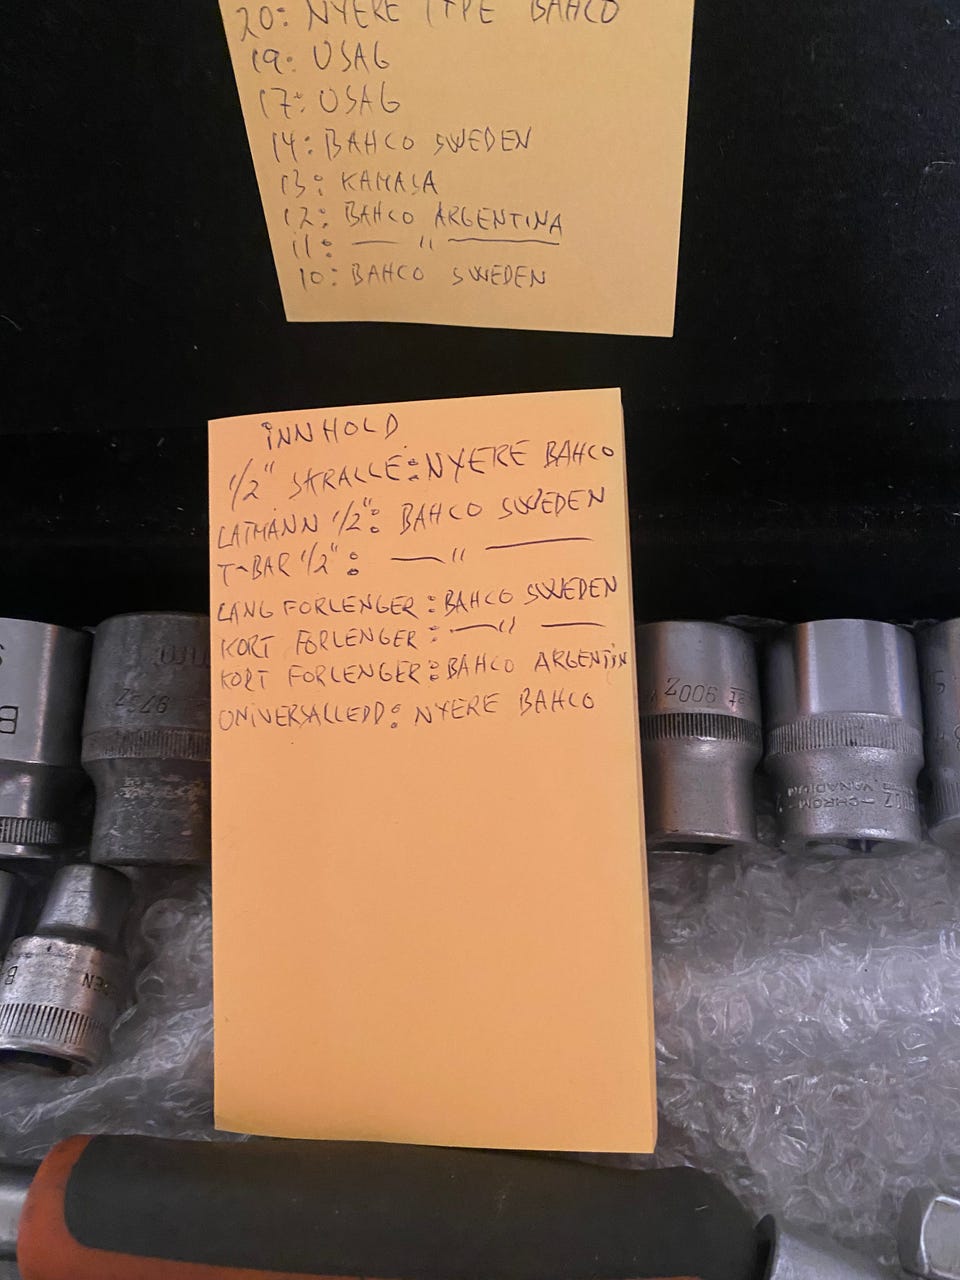 20: NYERE TYPE BAHCO
19: USAG
17: USAG
14: BAHCO SWEDEN
13: KAMASA
12: BAHCO ARGENTINA
11: — " —
10: BAHCO SWEDEN
INNHOLD
1/2" SKRALLE: NYERE BAHCO
LATMANN 1/2": BAHCO SWEDEN
T-BAR 1/2": — " —
LANG FORLENGER: BAHCO SWEDEN
KORT FORLENGER: — " —
KORT FORLENGER: BAHCO ARGENTIN
UNIVERSALLEDD: NYERE BAHCO
mm
9006Z
CHROM-
VANADIUM
B